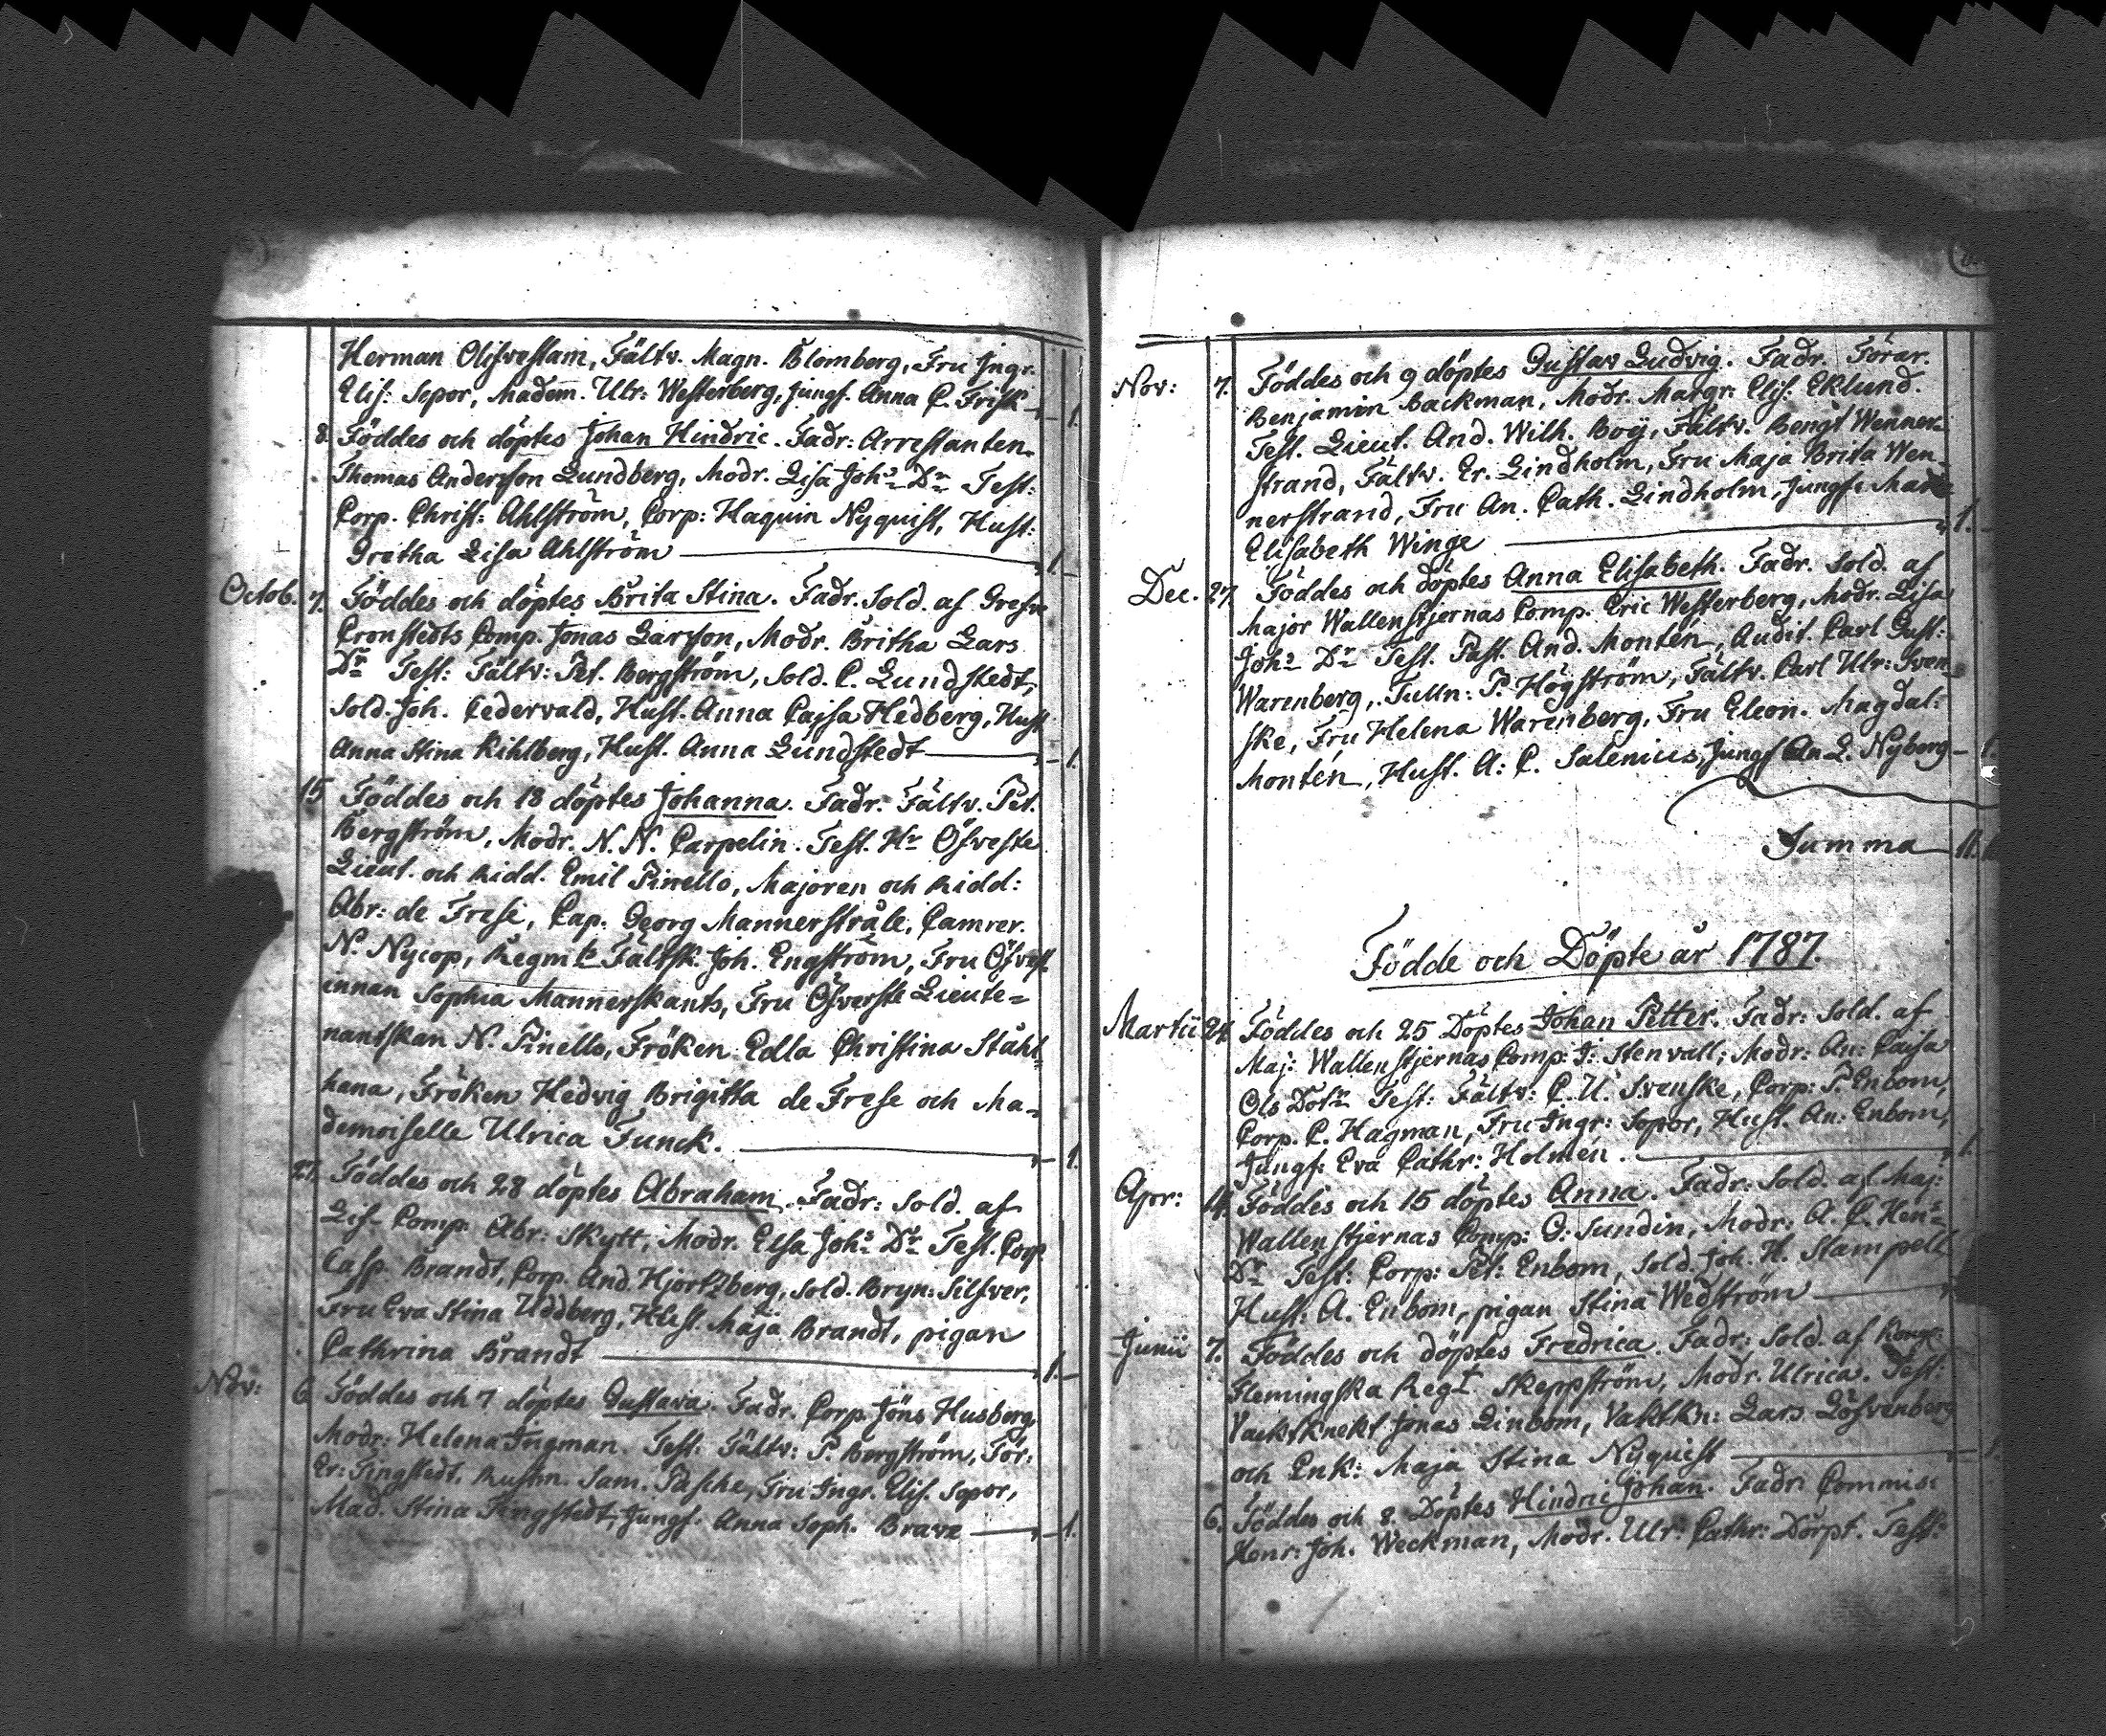 Herman Olifvestam, Fältv. Magn. Blomberg, Fru Jngr.
Elis: Sopor, Madem. Ulr: Westerberg, Jungf. Anna C. Frisk 1.
8. Föddes och döptes Johan Hindric. Fadr: Arrestanten
Thomas Andersson Lundberg, Modr. Lisa Johs Dr Test:
Corp. Christ: Ahlström, Corp: Haquin Nyquist, Hust:
Gretha Lisa Ahlström 1.
Octob. 7. Föddes och döptes Brita Stina. Fadr. Sold. af Grefve
Cronstedts Comp. Jonas Larsson, Modr. Britha Lars
Dr Test: Fältv: Pet. Bergström, Sold. C. Lundstedt,
Sold. Joh. Cedervald, Hust. Anna Cajsa Hedberg, Hust
Anna Stina Kihlberg, Hust. Anna Lundstedt 1.
15 Föddes och 18 döptes Johanna. Fadr. Fältv. Pet.
Bergström, Modr. N. N. Carpelin. Test. Hr Öfveste
Lieut. och Ridd. Emil Pinello, Majoren och Ridd:
Abr: de Frese, Cap. Georg Mannerstråle, Camrer.
N. Nycop, Regmts Fältsk. Joh. Engström, Fru Öfvest
innan Sophia Mannerskants, Fru Öfverste Lieute=
nantskan N. Pinello, Fröken Edla Christina Stål
hana, Fröken Hedvig Brigitta de Frese och Ma=
demoiselle Ulrica Funck. 1.
27. Föddes och 28 döptes Abraham. Fadr: Sold. af
Lif- Comp. Abr: Skytt, Modr. Elsa Johs Dr Test. Corp
Casp. Brandt, Corp. And. Hjortzberg, Sold. Bryn: Silfver,
Fru Eva Stina Uddberg, Hust. Maja Brandt, pigan
Cathrina Brandt 1.
Nov: 6 Föddes och 7 döptes Gustava. Fadr. Corp. Jöns Husberg,
Modr: Helena Jngman. Test: Fältv: P. Bergström, För:
Er: Tingstedt, Rustm. Sam. Pasche, Fru Jngr. Elis. Sopor,
Mad. Stina Tingstedt, Jungf. Anna Soph. Brave 1.
Nov: 7. Föddes och 9 döptes Gustav Ludvig. Fadr. Förar.
Benjamin Backman, Modr. Margr: Elis: Eklund.
Test. Lieut. And. Wilh. Boÿ, Fältv. Bengt Wenner=
strand, Fältv. Er. Lindholm, Fru Maja Brita Wen=
nerstrand, Fru An. Cath. Lindholm, Jungf. Maria
Elisabeth Winge 1.
Dec. 27 Föddes och döptes Anna Elisabeth. Fadr. Sold. af
Major Wallenstjernas Comp. Eric Westerberg, Modr. Lisa
Johs Dr Test. Past. And. Montén, Audit. Carl Gust:
Warenberg, Tulln: P. Högström, Fältv. Carl Ulr: Sven=
ske, Fru Helena Warenberg, Fru Eleon. Magdal:
Montén, Hust. A: C. Salenius, Jungf An L. Nyberg
Summa 11.
Födde och Döpte år 1787.
Martii 24. Föddes och 25 Döptes Johan Petter. Fadr: Sold. af
Maj: Wallenstjernas Comp: J: Stenvall; Modr: An: Caisa
Ols Dotr Test: Fältv: C. U. Svenske, Corp: P. Enbom,
Corp. C. Hagman, Fru Jngr: Sopor, Hust. An: Enbom,
Jungf: Eva Cathr: Holmén. 1.
Apr: 14. Föddes och 15 döptes Anna. Fadr: Sold. af Maj:
Wallenstjernas Comp: O: Sundin, Modr: A. C. Hens
Dr Test: Corp: Pet: Enbom, Sold. Joh. H. Stampell
Hust: A. Enbom, pigan Stina Wedström
Junii 7. Föddes och döptes Fredrica. Fadr: Sold. af
Flemingska Regt Skeppström, Modr. Ulrica. Test:
Vacktknekt Jonas Linbom, Vaktkn: Lars Löfvenberg
och Enk: Maja Stina Nyquist 1.
6. Föddes och 8. Döptes Hindric Johan. Fadr: Commis:
Henr: Joh. Weckman, Modr. Ulr: Cathr: Dörpt. Test: